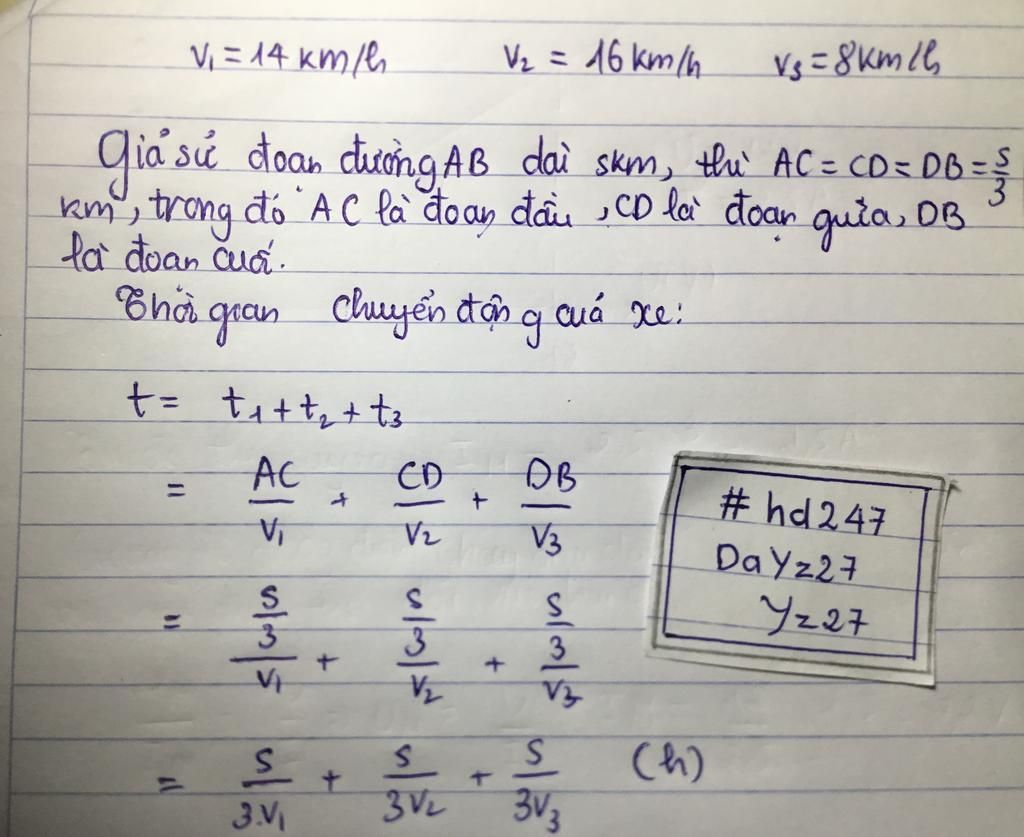 V₁ = 14 km/h V₂ = 16 km/h V₃ = 8 km/h
Giả sử đoạn đường AB dài s km, thì AC = CD = DB = s/3
km, trong đó AC là đoạn đầu, CD là đoạn giữa, DB
là đoạn cuối.
Thời gian chuyển động của xe:
t = t₁ + t₂ + t₃
= AC/V₁ + CD/V₂ + DB/V₃
= (s/3)/V₁ + (s/3)/V₂ + (s/3)/V₃
= s/3.V₁ + s/3V₂ + s/3V₃ (h)
# hd247
DaYz27
Yz27